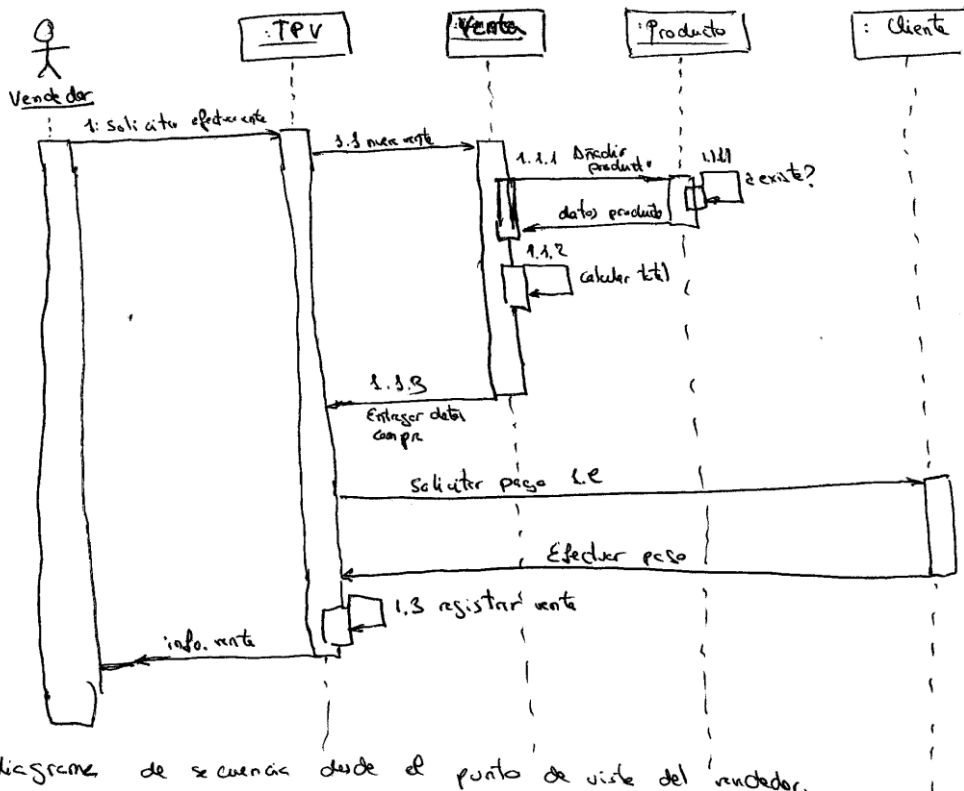 :TPV
:Venta
:Producto
: Cliente
Vendedor
1: Solicitar efectuar venta
1.1 nueva venta
1.1.1 Añadir
producto
1.1.1.1
¿existe?
datos producto
1.1.2
calcular total
1.1.3
Entregar datos
compra
Solicitar pago 1.2
Efectuar pago
1.3 registrar venta
info. venta
diagrama de secuencia desde el punto de vista del vendedor.